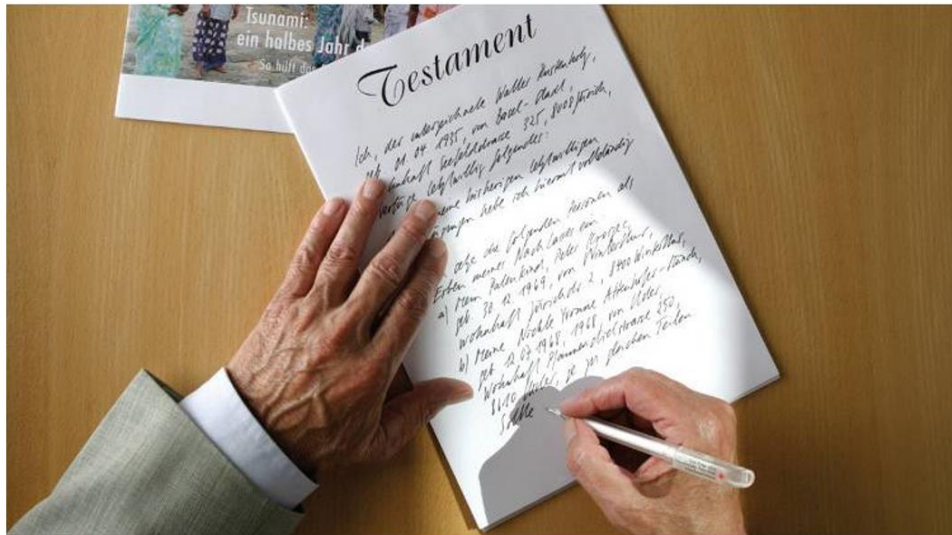 Tsunami:
ein halbes Jahr d
So hilft da
Testament
Ich, der unterzeichnete Walter
geb. 01. 04. 1935, von Basel-Stadt,
wohnhaft Seefeldstrasse 325, 8008 Zürich,
verfüge letztwillig folgendes:
meine bisherigen letztwilligen
ungen hebe ich hiermit vollständig
setze die folgenden Personen als
Erben meines Nachlasses ein
a) Mein Patenkind, Peter
geb. 30. 12. 1969, von Winterthur,
wohnhaft 2, 8400 Winterthur,
b) Meine Nichte Yvonne
geb. 12. 07. 1968, von Uster,
wohnhaft 250,
8610 Uster, je zu gleichen Teilen
Sollte